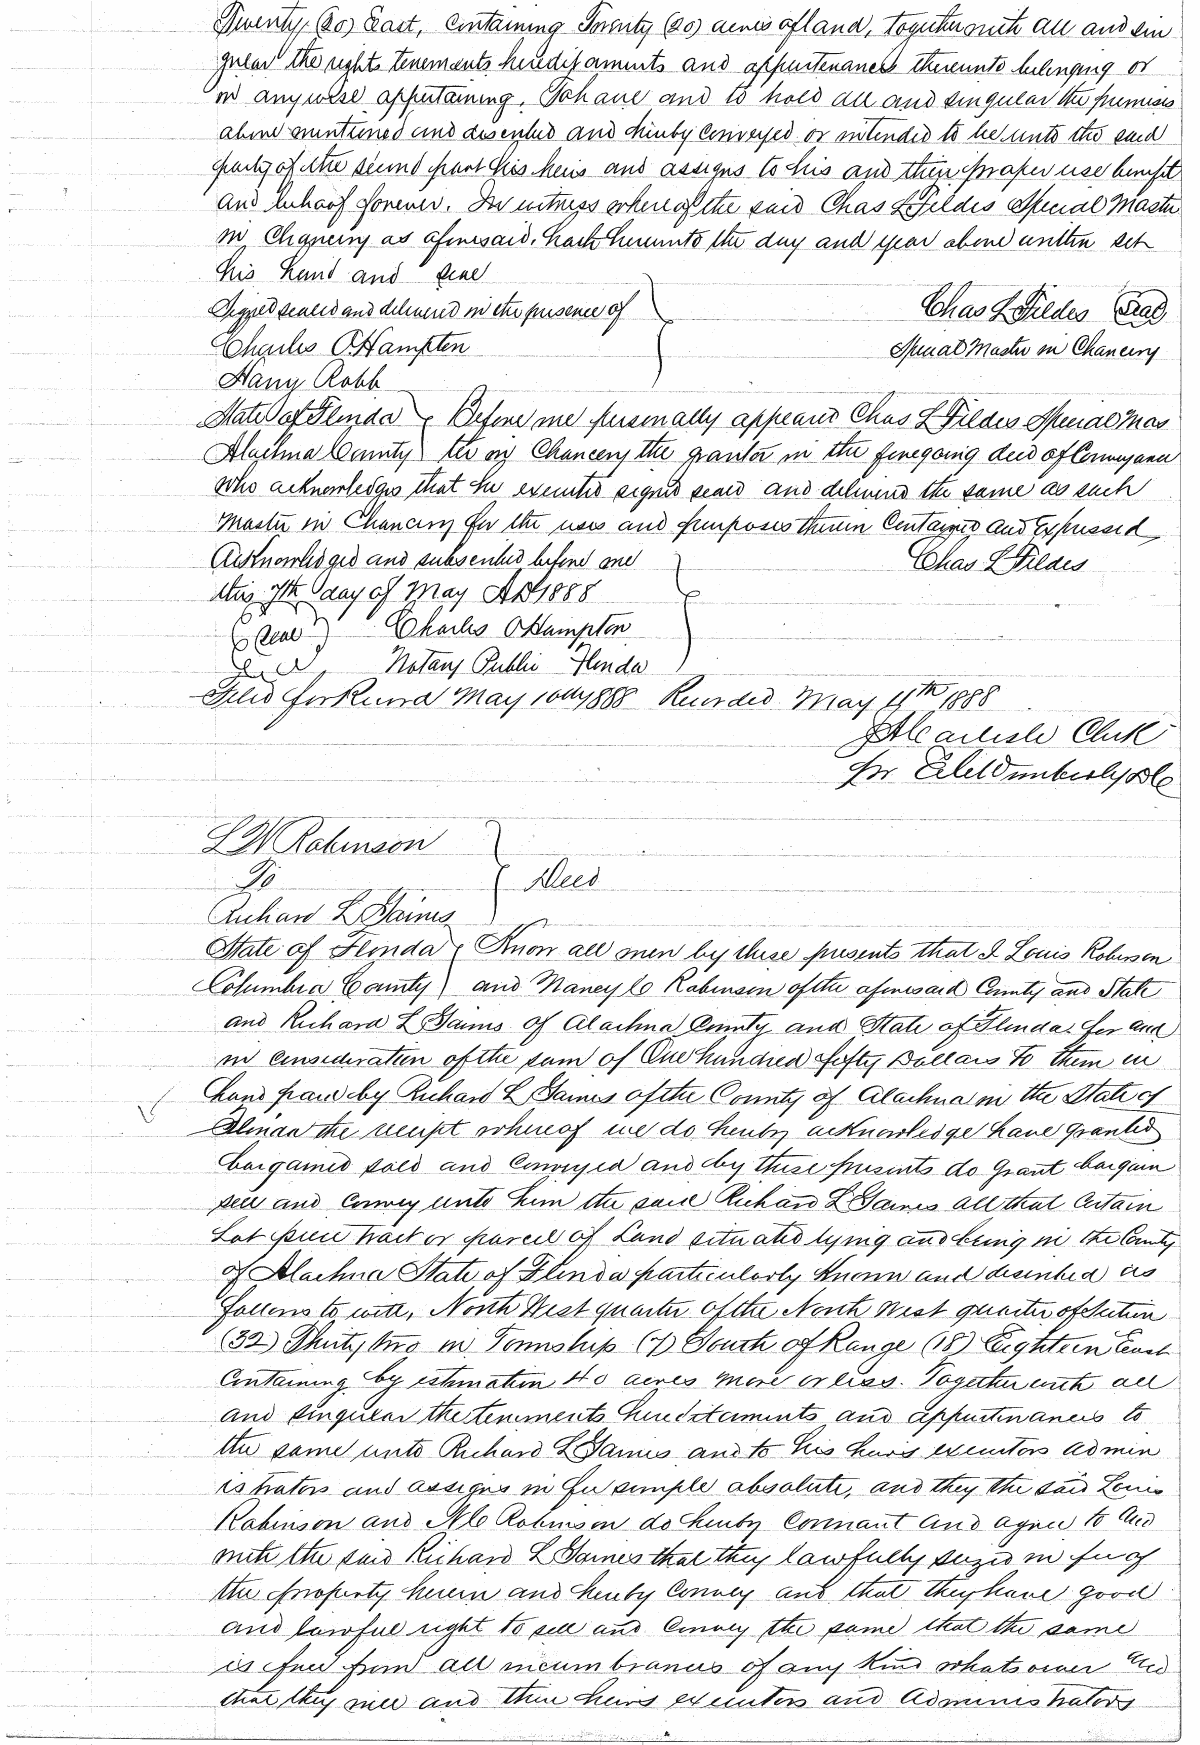 Twenty (20) East, Containing Twenty (20) acres of land, together with all and sin
gular the rights tenements hereditaments and appurtenances thereunto belonging or
in anywise appertaining, To have and to hold all and singular the premises
above mentioned and described and hereby Conveyed or intended to be unto the said
party of the second part his heirs and assigns to his and their proper use benefit
and behoof forever. In witness whereof the said Chas L Fildes Special Master
in Chancery as aforesaid, hath hereunto the day and year above written set
his hand and seal
Signed sealed and delivered in the presence of
Chas L Fildes (Seal)
Charles O Hampton
Special Master in Chancery
Harry Robb
State of Florida } Before me personally appeared Chas L Fildes Special Mas
Alachua County } ter in Chancery the grantor in the foregoing deed of Conveyance
who acknowledges that he executed signed seald and delivered the same as such
Master in Chancery for the uses and purposes therein Contained and Expressed
Acknowledged and subscribed before me
Chas L Fildes
this 7th day of May AD 1888
(Seal) Charles O Hampton
Notary Public Florida
Filed for Record May 10th 1888 Recorded May 11th 1888
J A Carlisle Clerk
for
L W Robinson
To } Deed
Richard L Gaines
State of Florida } Know all men by these presents that I Louis Robinson
Columbia County } and Nancy C Robinson of the aforesaid County and State
and Richard L Gaines of Alachua County and State of Florida. for and
in consideration of the sum of One hundred fifty Dollars to them in
hand paid by Richard L Gaines of the County of Alachua in the State of
Florida the receipt whereof we do hereby acknowledge have granted
bargained sold and Conveyed and by these presents do Grant bargain
sell and Convey unto him the said Richard L Gaines all that Certain
Lot piece tract or parcel of Land situated lying and being in the County
of Alachua State of Florida particularly known and described as
follows to wit, North West quarter of the North West quarter of Section
(32) Thirty two in Township (7) South of Range (18) Eighteen East
Containing by estimation 40 acres more or less. Together with all
and singular the tenements hereditaments and appurtinances to
the same unto Richard L Gaines and to his heirs executors admin
istrators and assigns in fee simple absolute, and they the said Louis
Robinson and N C Robinson do hereby Covenant and agree to and
with the said Richard L Gaines that they lawfully seized in fee of
the property herein and hereby Convey and that they have good
and lawful right to sell and Convey the same that the same
is free from all incumbrances of any kind whatsoever and
that they will and their heirs executors and Administrators